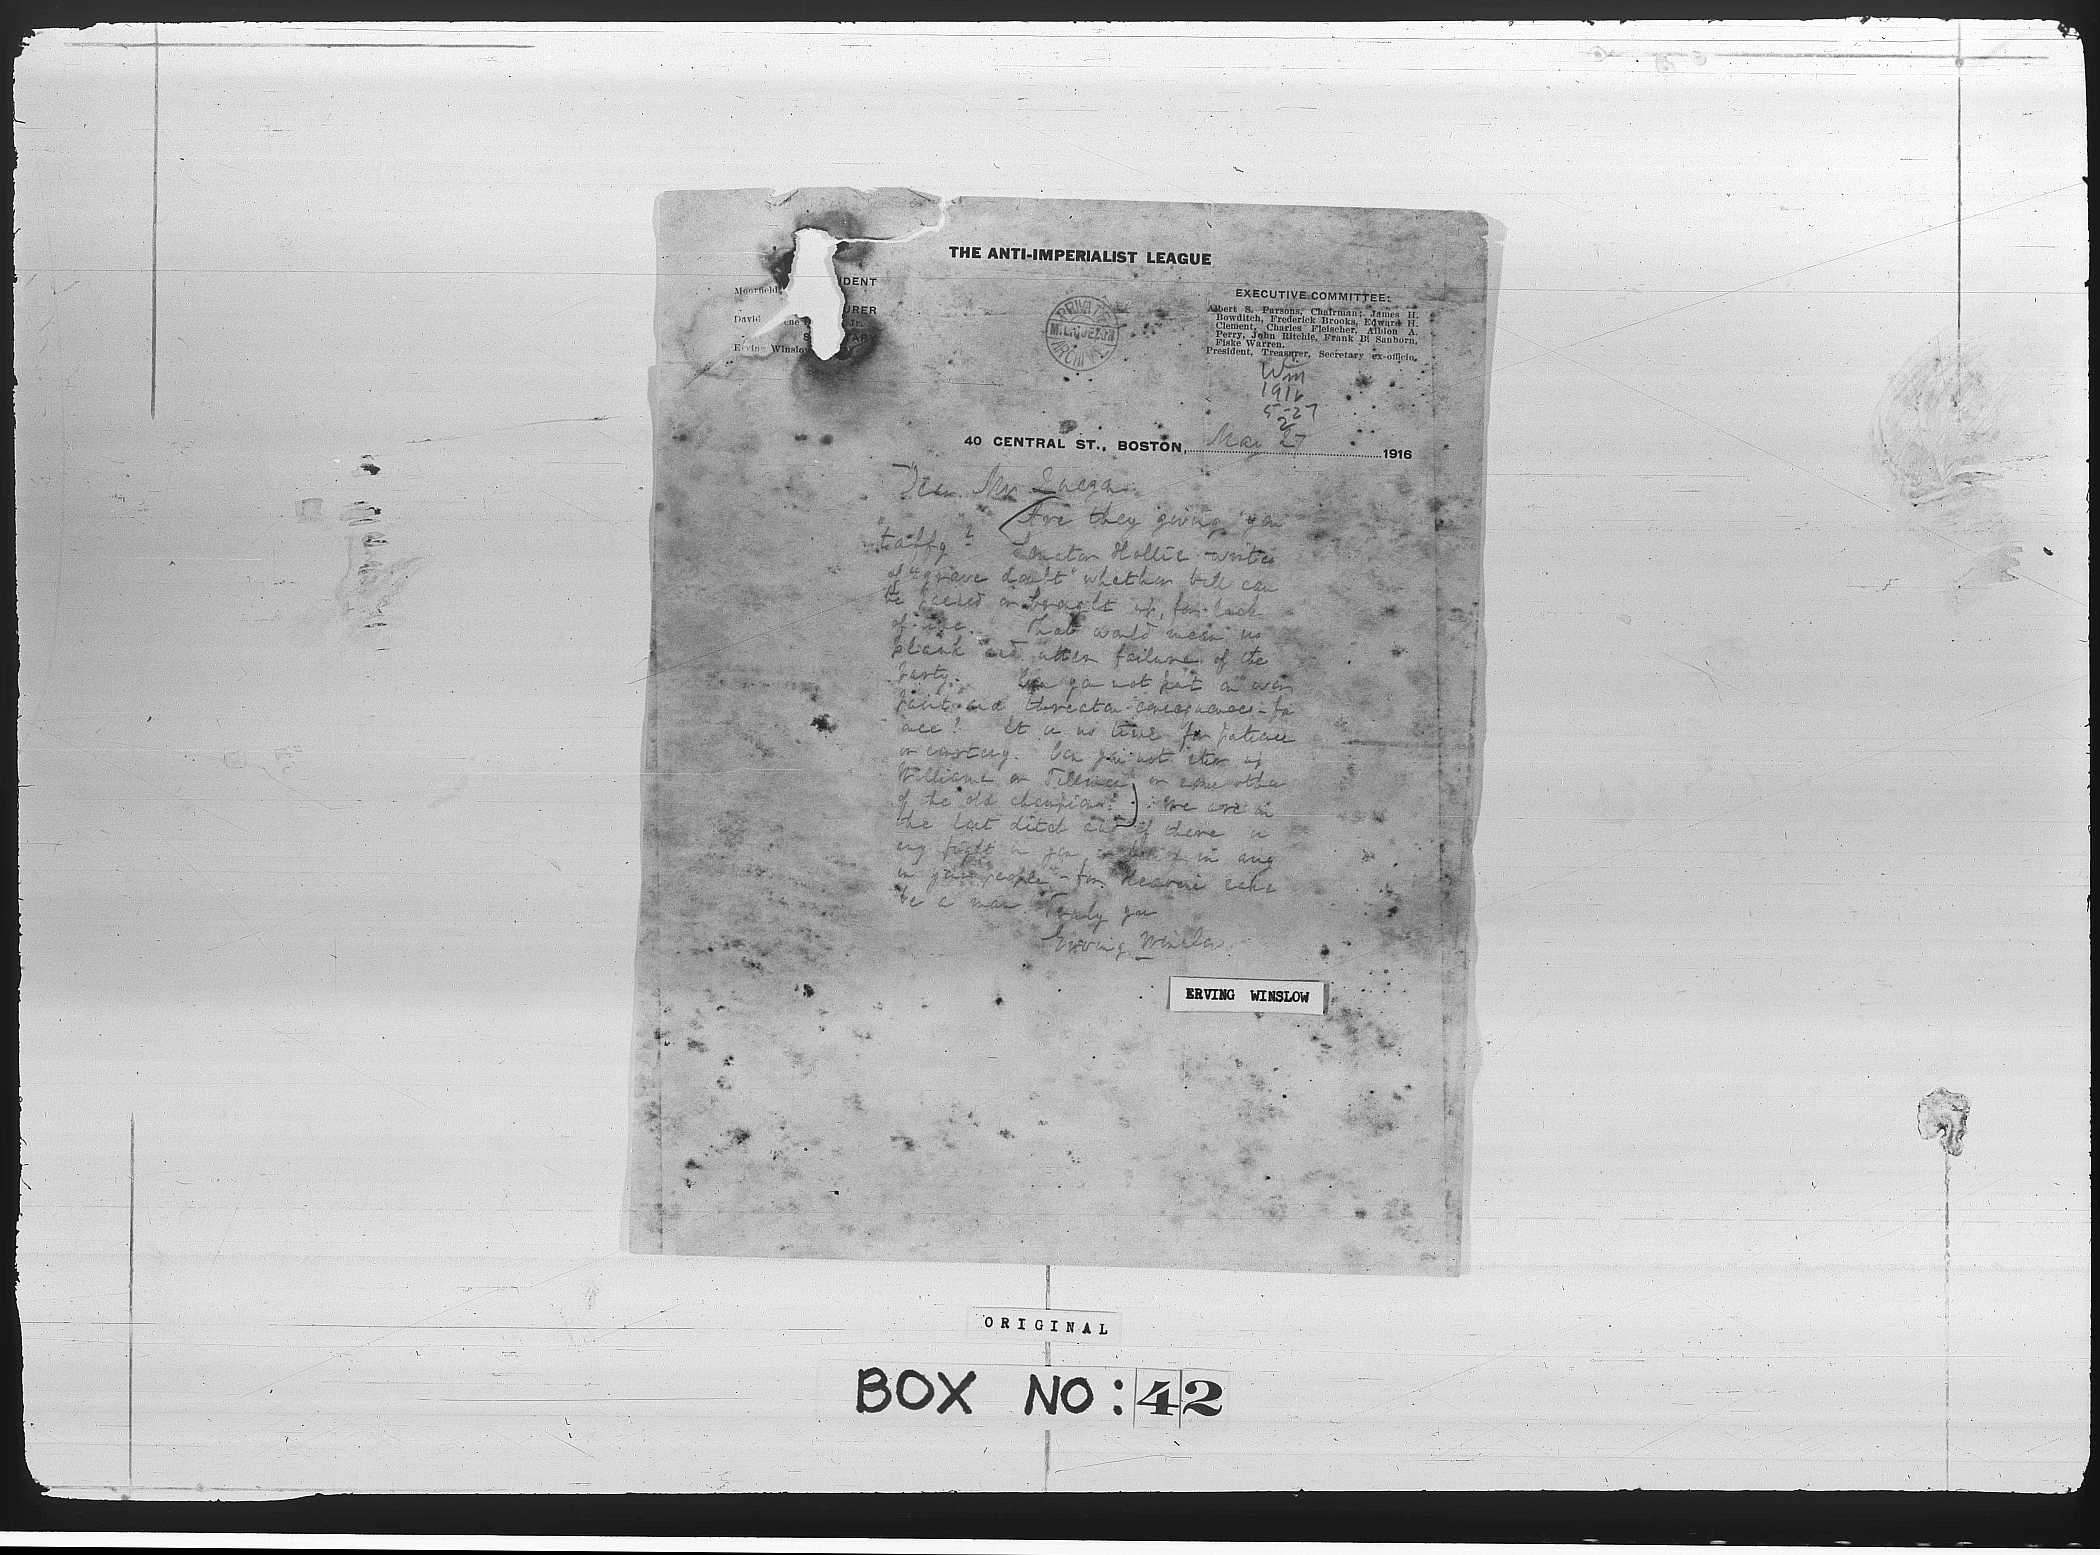 THE ANTI-IMPERIALIST LEAGUE
IDENT
Moorfield
URER
David
Erving Winslow
EXECUTIVE COMMITTEE:
Albert S. Parsons, Chairman; James H.
Bowditch, Frederick Brooks, Edward H.
Clement, Charles Fleischer, Albion A.
Perry, John Ritchie, Frank B. Sanborn,
Fiske Warren.
President, Treasurer, Secretary ex-officio.
PRIVATE
M. L. QUEZON
ARCHIVE
1916
5-27
40 CENTRAL ST., BOSTON, May 27 1916
Dear Mr
Are they giving you
taffy? Senator Hollis writes
of "grave doubt" whether bill can
be passed or brought up, for lack
of time. That would mean no
plank and utter failure of the
party. Can you not put on war
paint and threaten consequences
It is no time for patience
or courtesy. Can you not stir up
Williams or Tillman or some other
of the old champions? We are in
the last ditch and if there is
any fight in you or in any
in your people - for Heaven's sake
be a man. Truly you
Erving Winslow
ERVING WINSLOW
ORIGINAL
BOX NO: 42